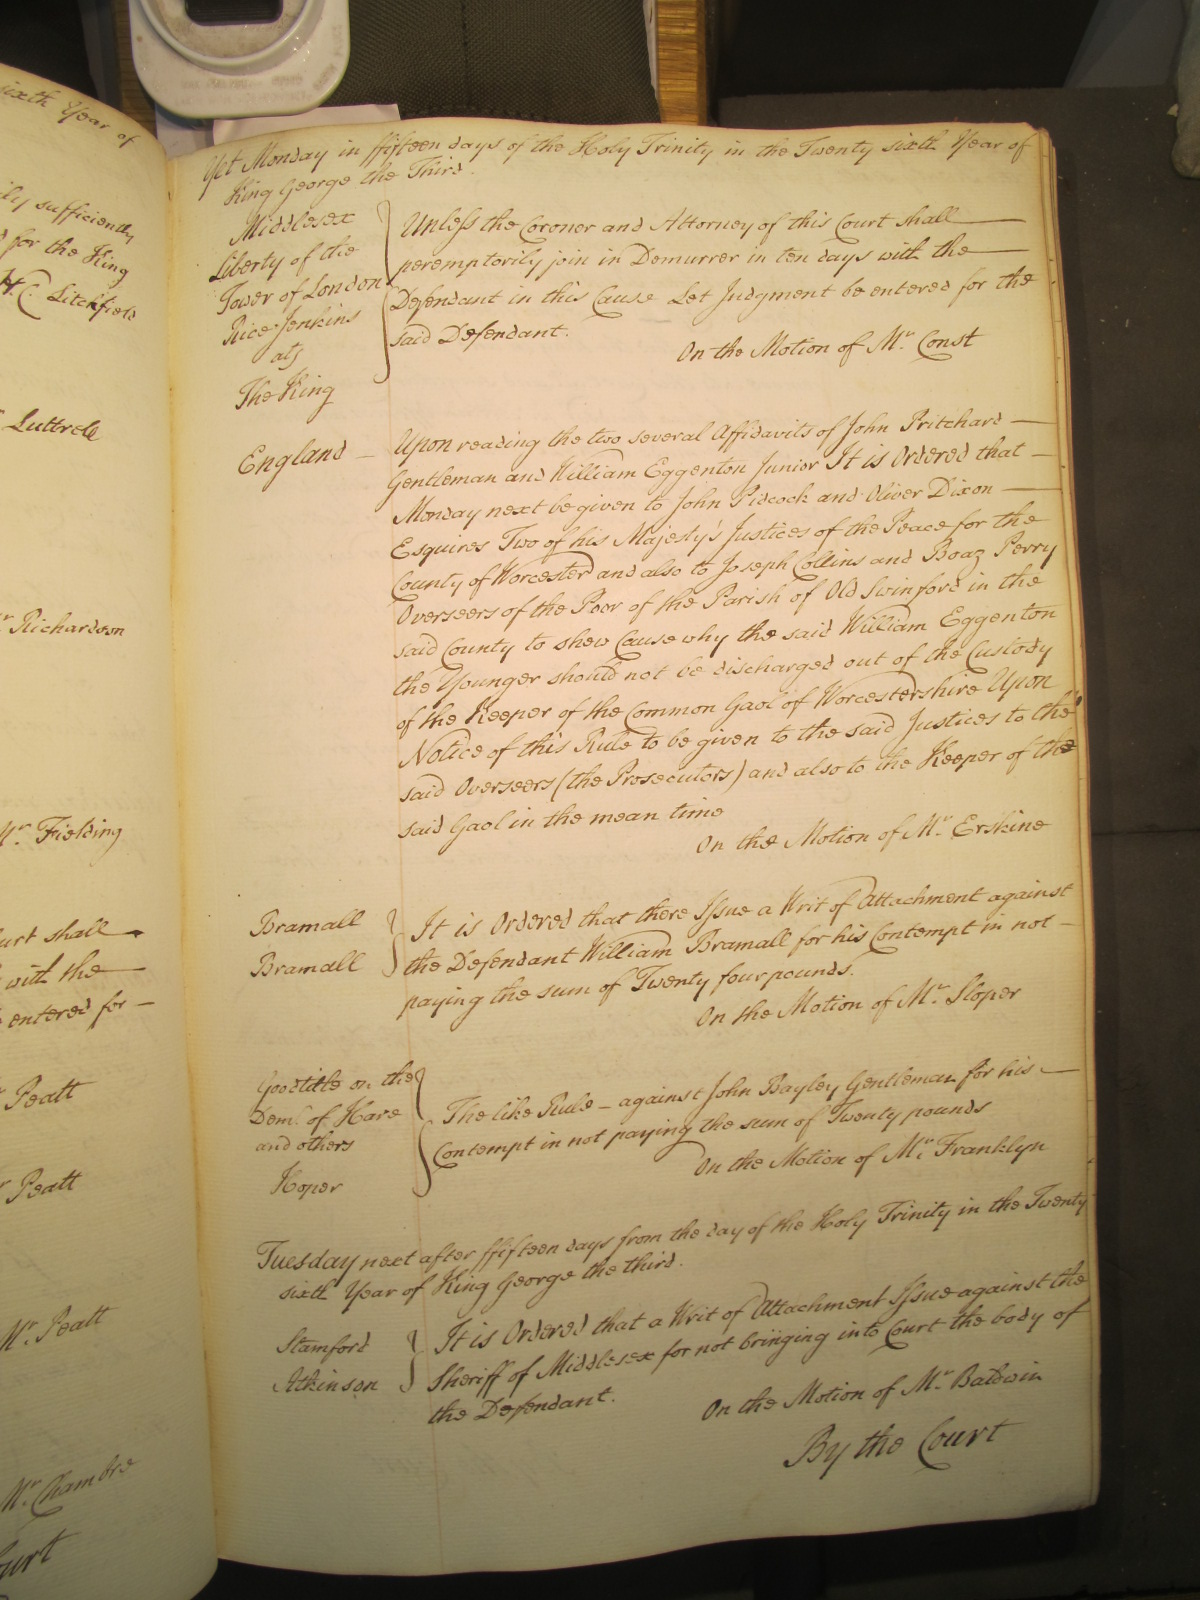 sixth Year of
sufficiently
for the King
H. C. Litchfield
Luttrell
Mr. Richardson
Mr. Fielding
Court shall
with the
entered for
Peatt
Peatt
Mr. Peatt
Mr. Chambre
Court
Yet Monday in ffifteen days of the Holy Trinity in the Twenty sixth Year of
King George the Third.
Middlesex
Liberty of the
Tower of London
Rice Jenkins
ats
The King
Unless the Coroner and Attorney of this Court shall
peremptorily join in Demurrer in ten days with the
Defendant in this Cause Let Judgment be entered for the
said Defendant.
On the Motion of Mr. Const
England
Upon reading the two several Affidavits of John Pritchard
Gentleman and William Eggenton Junior It is Ordered that
Monday next be given to John Pidcock and Oliver Dixon
Esquires Two of his Majesty's Justices of the Peace for the
County of Worcester and also to Joseph Collins and Boaz Perry
Overseers of the Poor of the Parish of Old Swinford in the
said County to shew Cause why the said William Eggenton
the Younger should not be discharged out of the Custody
of the Keeper of the Common Gaol of Worcestershire Upon
Notice of this Rule to be given to the said Justices to the
said Overseers (the Prosecutors) and also to the Keeper of the
said Gaol in the mean time
On the Motion of Mr. Erskine
Bramall
Bramall
It is Ordered that there Issue a Writ of Attachment against
the Defendant William Bramall for his Contempt in not
paying the sum of Twenty four pounds.
On the Motion of Mr. Sloper
Goodtitle on the
Deml. of Hare
and others
Hoper
The like Rule – against John Bayley Gentleman for his
Contempt in not paying the sum of Twenty pounds
On the Motion of Mr. Franklyn
Tuesday next after ffifteen days from the day of the Holy Trinity in the Twenty
sixth Year of King George the third.
Stamford
Atkinson
It is Ordered that a Writ of Attachment Issue against the
Sheriff of Middlesex for not bringing into Court the body of
the Defendant.
On the Motion of Mr. Baldwin
By the Court